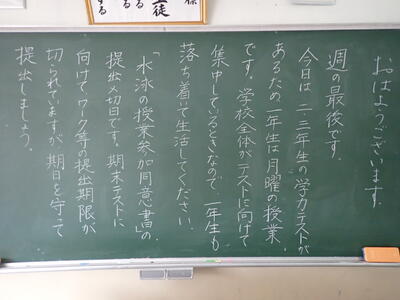 おはようございます。
週の最後です。
今日は二・三年生の学力テストが
あるため、一年生は月曜の授業。
です。学校全体がテストに向けて
集中しているときなので、一年生も
落ち着いて生活してください。
「水泳の授業参加同意書」の
提出〆切日です。期末テストに
向けてワーク等の提出期限が
切られていますが期日を守って
提出しましょう。
生徒
する